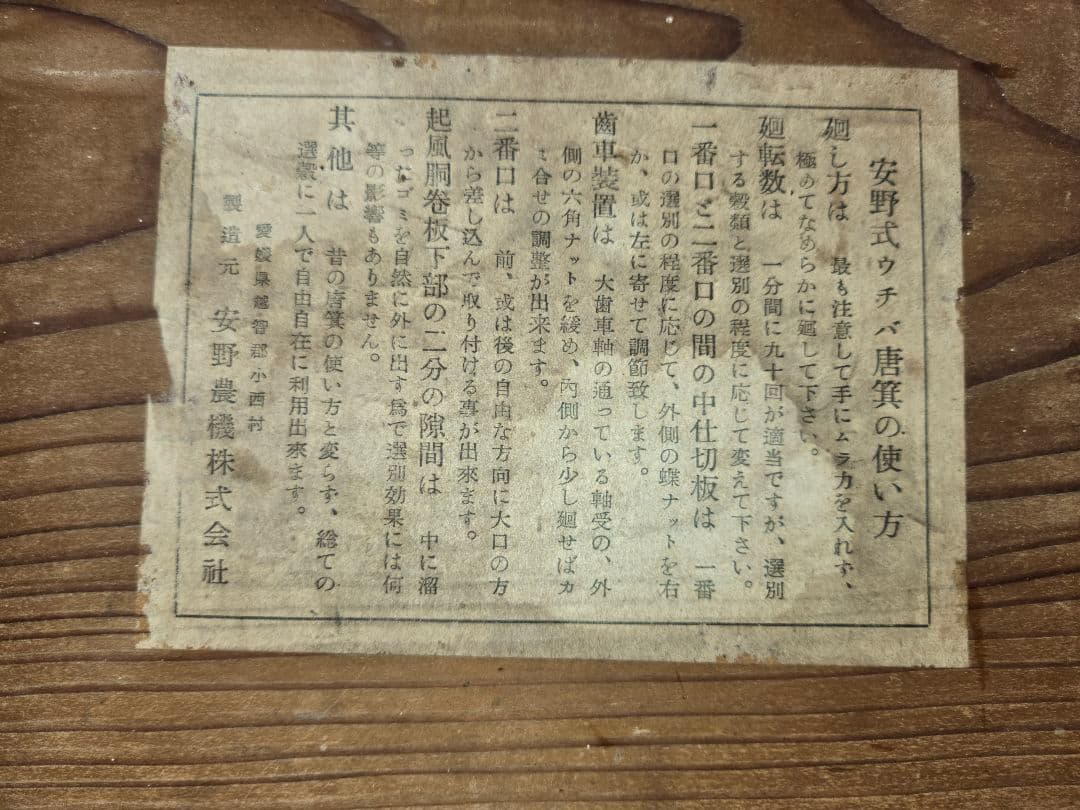 安野式ウチバ唐箕の使い方
廻し方は 最も注意して手にムラ力を入れず、
極めてなめらかに廻して下さい。
廻転数は 一分間に九十回が適当ですが、選別
する穀類と選別の程度に応じて変えて下さい。
一番口と二番口の間の中仕切板は 一番
口の選別の程度に応じて、外側の蝶ナットを右
か、或は左に寄せて調節致します。
歯車装置は 大歯車軸の通っている軸受の、外
側の六角ナットを緩め、内側から少し廻せばカ
ミ合せの調整が出来ます。
二番口は 前、或は後の自由な方向に大口の方
から差し込んで取り付ける事が出来ます。
起風胴巻板下部の二分の隙間は 中に溜
ったゴミを自然に外に出す為で選別効果には何
等の影響もありません。
其他は 昔の唐箕の使い方と変らず、総ての
選穀に一人で自由自在に利用出来ます。
愛媛県越智郡小西村
製造元 安野農機株式会社